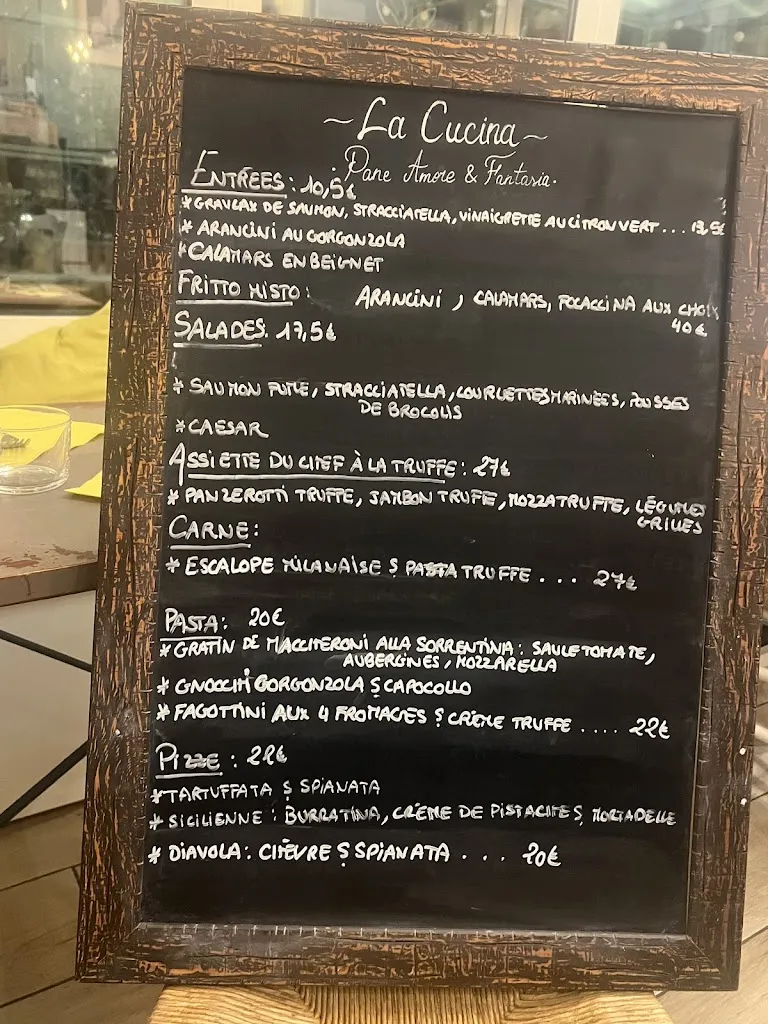 ~La Cucina~
Pane Amore & Fantasia.
ENTRÉES: 10,5€
*GRAVLAX DE SAUMON, STRACCIATELLA, VINAIGRETTE AU CITRON VERT...
* ARANCINI AU GORGONZOLA
*CALAMARS EN BEIGNET
FRITTO MISTO: ARANCINI, CALAMARS, FOCACCINA AUX CHOIX
40€
SALADES. 17,5€
* SAUMON FUME, STRACCIATELLA, COURGETTES MARINEES, POUSSES
DE BROCOLIS
*CAESAR
ASSIETTE DU CHEF À LA TRUFFE: 27€
* PANZEROTTI TRUFFE, JAMBON TRUFFE, MOZZA TRUFFE, LÉGUMES
GRILLES
CARNE:
* ESCALOPE MILANAISE & PASTA TRUFFE... 27€
PASTA: 20€
*GRATIN DE MACCHERONI ALLA SORRENTINA: SAUCE TOMATE,
AUBERGINES, MOZZARELLA
* GNOCCHI GORGONZOLA & CAPOCOLLO
* FAGOTTINI AUX 4 FROMAGES & CRÈME TRUFFE .... 22€
PIZZE: 22€
*TARTUFFATA & SPIANATA
* SICILIENNE: BURRATINA, CRÈME DE PISTACHES, MORTADELLE
* DIAVOLA: CHÈVRE & SPIANATA... 20€